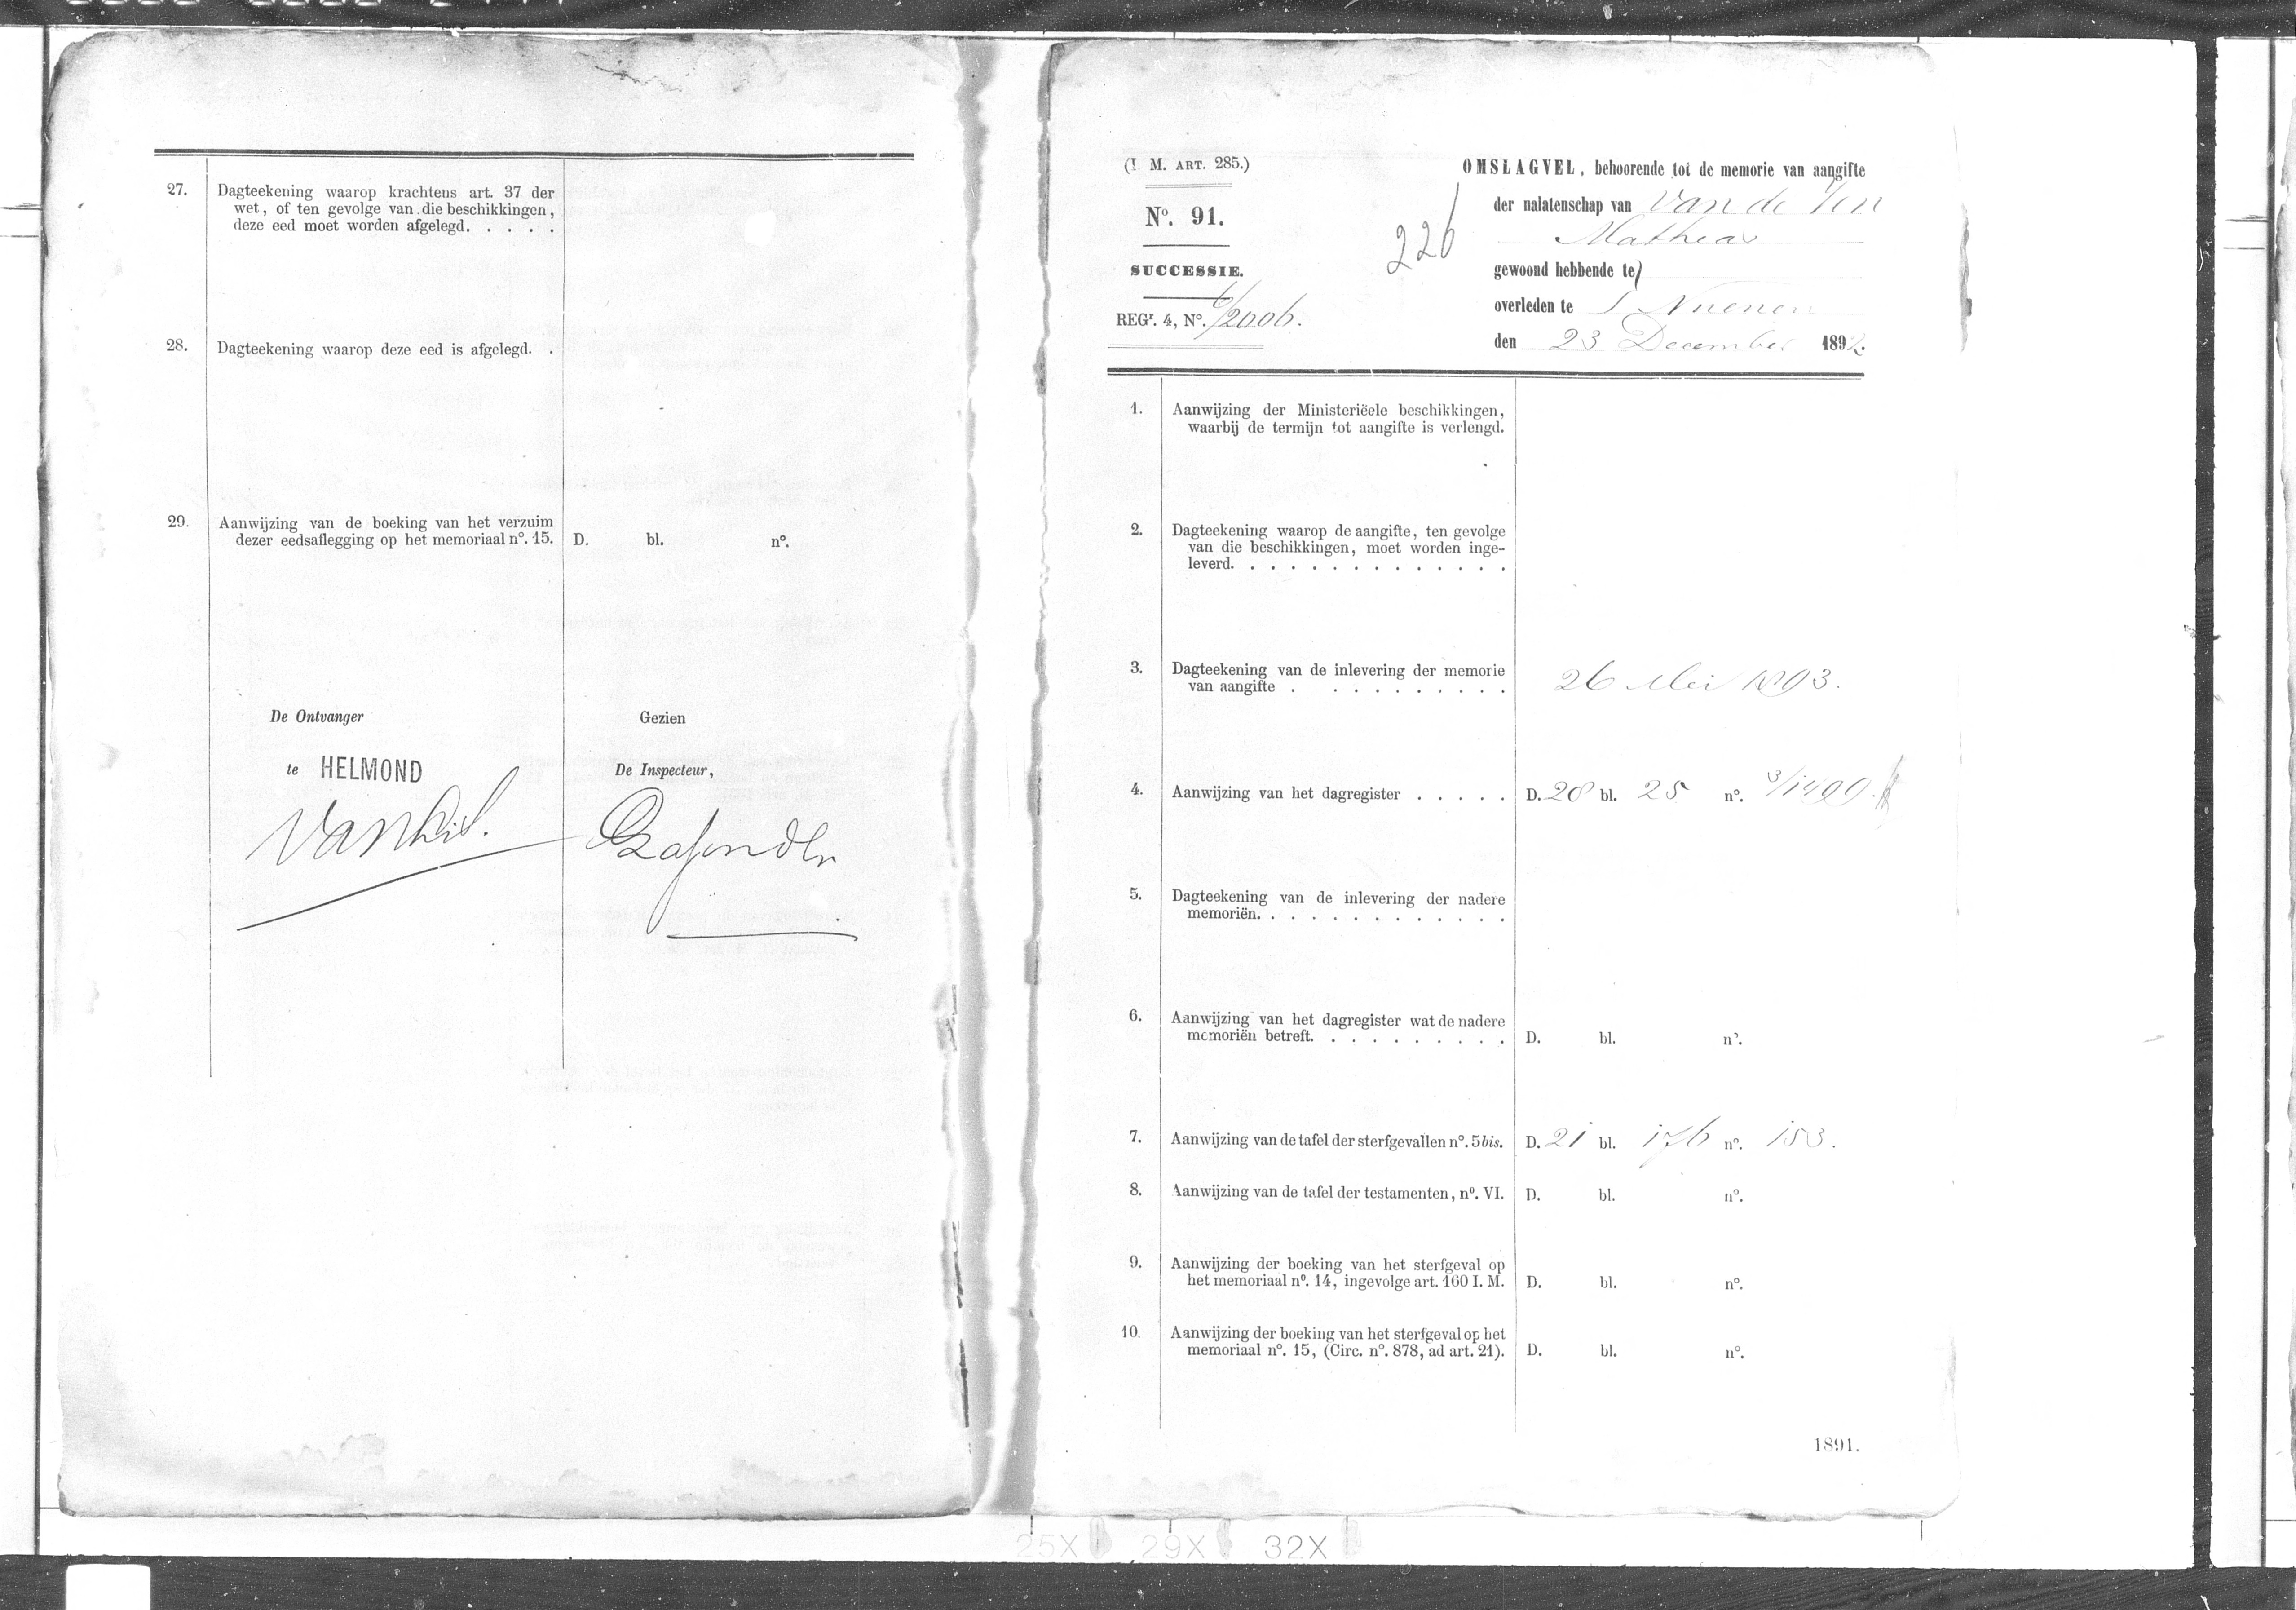 27. Dagteekening waarop krachtens art. 37 der
wet, of ten gevolge van die beschikkingen,
deze eed moet worden afgelegd. . . . .
28. Dagteekening waarop deze eed is afgelegd. .
29. Aanwijzing van de boeking van het verzuim
dezer eedsaflegging op het memoriaal nº. 15. D. bl. nº.
De Ontvanger
te HELMOND
Gezien
De Inspecteur,
(I. M. ART. 285.)
Nº. 91.
SUCCESSIE.
REGr. 4, Nº. 6/2006.
226
OMSLAGVEL, behoorende tot de memorie van aangifte
der nalatenschap van Van de Ven
Mathias
gewoond hebbende te
overleden te Nuenen
den 23 December 1892.
1. Aanwijzing der Ministerieële beschikkingen,
waarbij de termijn tot aangifte is verlengd.
2. Dagteekening waarop de aangifte, ten gevolge
van die beschikkingen, moet worden inge-
leverd. . . . . . . . . . . . . .
3. Dagteekening van de inlevering der memorie
van aangifte . . . . . . . . . . 26 Mei 1893.
4. Aanwijzing van het dagregister . . . . . D. 28 bl. 25 nº. 3/1499.
5. Dagteekening van de inlevering der nadere
memoriën. . . . . . . . . . . . .
6. Aanwijzing van het dagregister wat de nadere
memoriën betreft. . . . . . . . . . D. bl. nº.
7. Aanwijzing van de tafel der sterfgevallen nº. 5bis. D. 21 bl. 176 nº. 153.
8. Aanwijzing van de tafel der testamenten, nº. VI. D. bl. nº.
9. Aanwijzing der boeking van het sterfgeval op
het memoriaal nº. 14, ingevolge art. 160 I. M. D. bl. nº.
10. Aanwijzing der boeking van het sterfgeval op het
memoriaal nº. 15, (Circ. nº. 878, ad art. 21). D. bl. nº.
1891.
25X 29X 32X